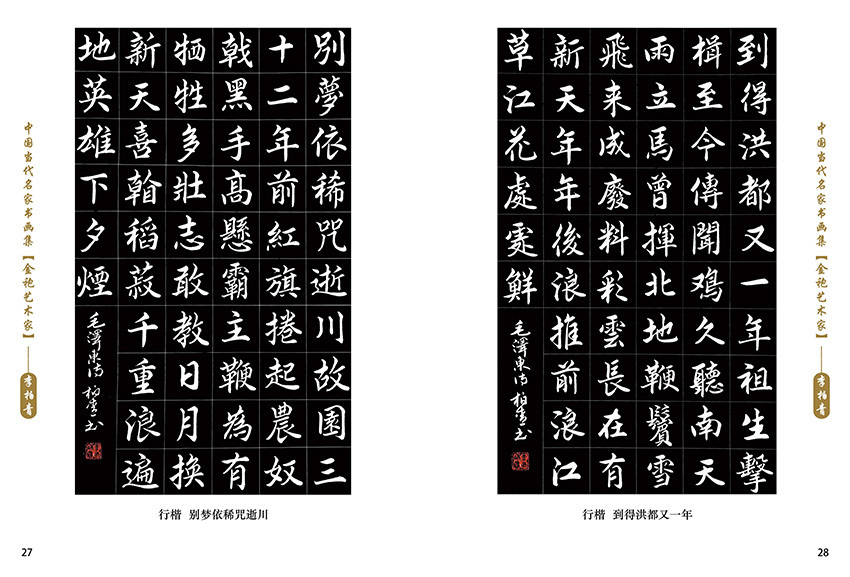 中国当代名家书画集【金袍艺术家】
李柏青
別夢依稀咒逝川故園三
十二年前紅旗捲起農奴
戟黑手高懸霸主鞭為有
牺牲多壯志敢教日月換
新天喜翰稻菽千重浪遍
地英雄下夕煙
毛澤東詩 柏青书
行楷 别梦依稀咒逝川
27
到得洪都又一年祖生擊
楫至今傳聞鷄久聽南天
雨立馬曾揮北地鞭鬢雪
飛來成廢料彩雲長在有
新天年年後浪推前浪江
草江花處處鮮
毛澤東詩 柏青书
行楷 到得洪都又一年
28
中国当代名家书画集【金袍艺术家】
李柏青